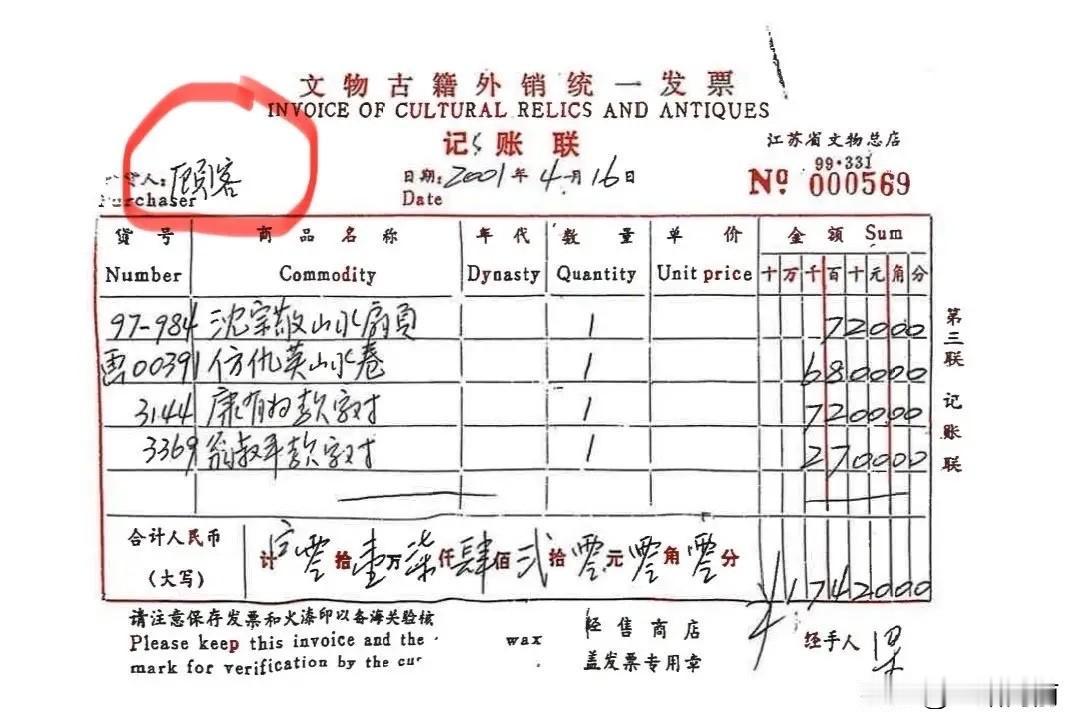 文物古籍外销统一发票
INVOICE OF CULTURAL RELICS AND ANTIQUES
记账联
江苏省文物总店
99·331
货人:顾客
日期:2001年4月16日
Nº 000569
Purchaser
Date
货号 商品名称 年代 数量 单价 金额 Sum
Number Commodity Dynasty Quantity Unit price 十万千百十元角分
97-984 沈宗敬山水扇页 1 72000
00391 仿仇英山水卷 1 680000
3144 康有为款字对 1 720000
3369 翁叔平款字对 1 270000
合计人民币
(大写)
计 零拾壹万柒仟肆佰贰拾零元零角零分 ¥1742000
第三联 记账联
请注意保存发票和火漆印以备海关验核
Please keep this invoice and the wax
mark for verification by the cus
经售商店
盖发票专用章
经手人 梁